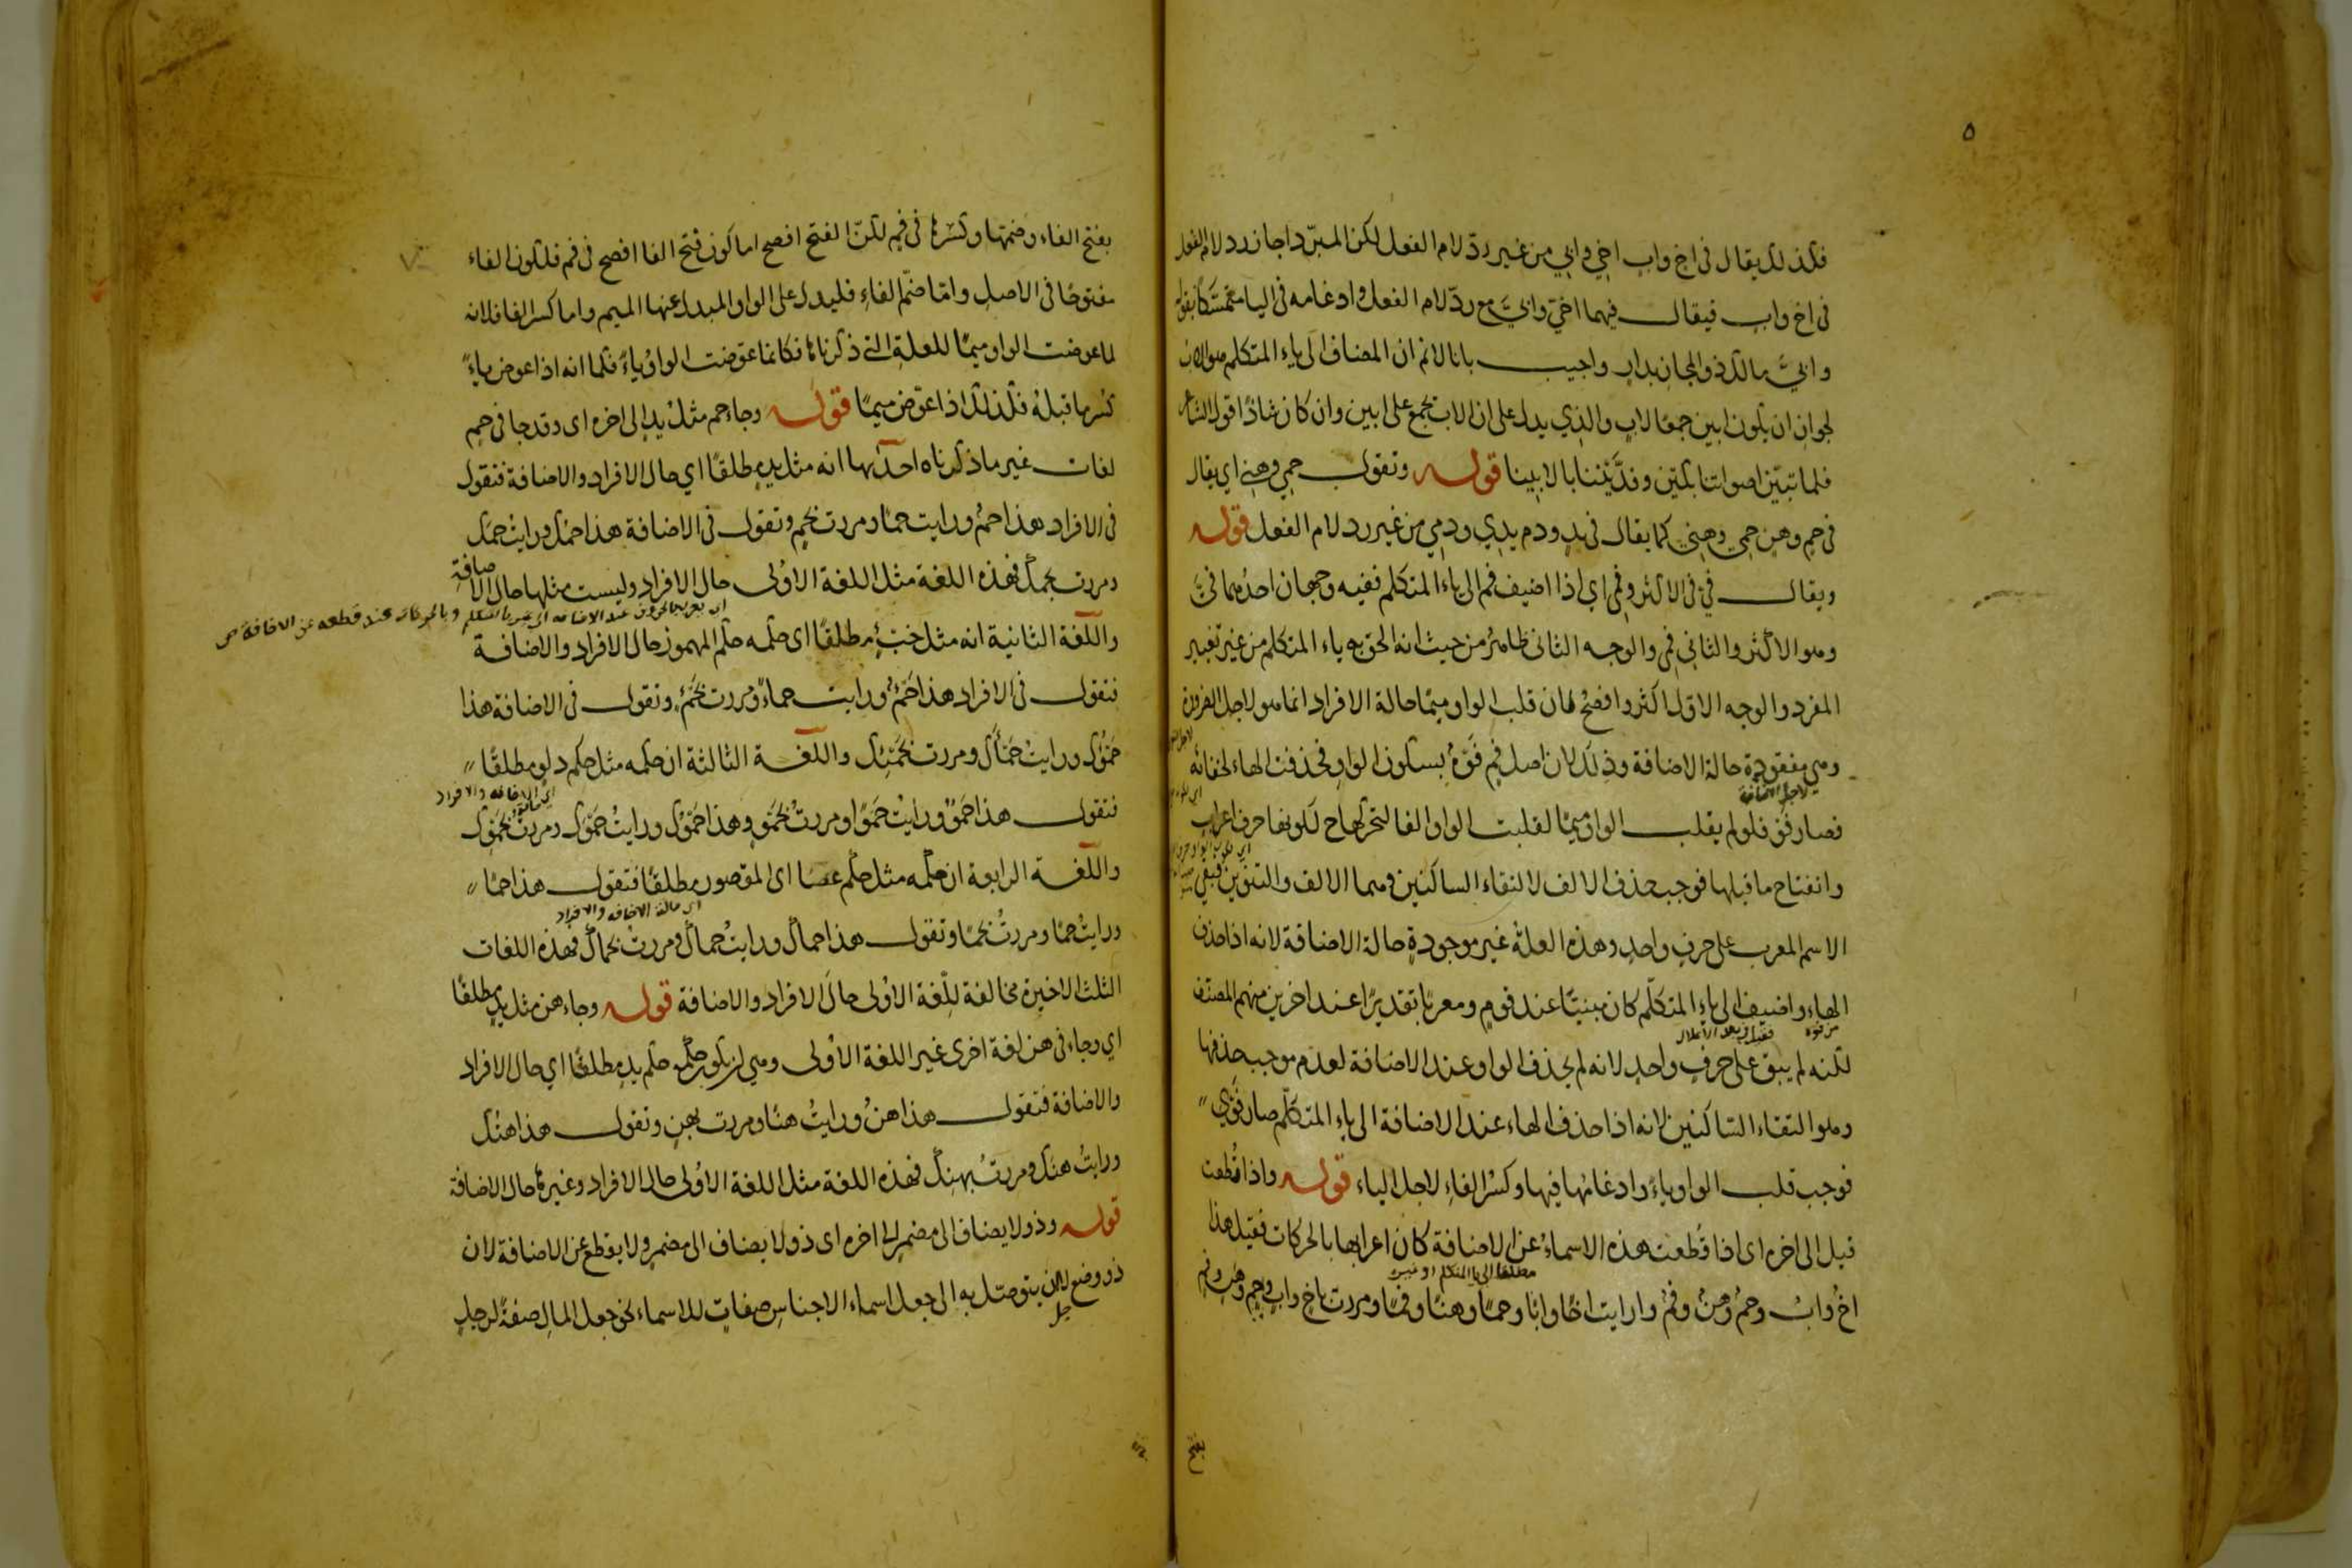 ٥
فكذلك يقال فى اخ واب اخي وابي من غير ردّ لام الفعل لكن المبرّد اجاز رد لام الفعل
فى اخ واب فيقال فيهما اخيّ وابيّ مع ردّ لام الفعل وادغامه فى اليا متمسكا بقوله
وابيّ مالك ذو المجاز بدار واجيب بانا لا نم ان المضاف الى ياء المتكلم هو الاب
لجواز ان يكون ابين جمعا لاب والذي يدل على ان الاب يجمع على ابين وان كان شاذا قول الشاعر
فلما تبيّن اصواتنا بكين وفدّيننا بالابينا قوله وتقول حمي وهني اي يقال
فى حم وهن حمي وهني كما يقال فى يد ودم يدي ودمي من غير رد لام الفعل قوله
ويقال فيّ فى الاكثر وفمي اي اذا اضيف فم الى ياء المتكلم ففيه وجهان احدهما فيّ
وهو الاكثر والثاني فمي والوجه الثانى ظاهر من حيث انه الحق به ياء المتكلم من غير تغيير
المفرد والوجه الاوّل اكثر وافصح لان قلب الواو ميما حالة الافراد انما هو لاجل الضرورة
وهي مفقودة حالة الاضافة وذلك لان اصل فم فَوْهٌ بسكون الواو فحذفت الهاء لخفائه
لاجل الاضافة
فصار فَوٌ فلو لم يقلب الواو ميمًا لقلبت الواو الفا لتحركها ح لكونها حرف اعراب
وانفتاح ما قبلها فوجب حذف الالف لالتقاء الساكنين وهما الالف والتنوين فبقي
الاسم المعرب على حرف واحد وهذه العلة غير موجودة حالة الاضافة لانه اذا حذف
الهاء واضيف الى ياء المتكلّم كان مبنيّا عند قوم ومعربا تقديرًا عند اخرين منهم المصنف
من فوه
لكنه لم يبق على حرف واحد لانه لم يحذف الواو عند الاضافة لعدم موجب حذفها
وهو التقاء الساكنين لانه اذا حذف الهاء عند الاضافة الى ياء المتكلّم صار فَوْي
فوجب قلب الواو ياءً وادغامها فيها وكسر الفاء لاجل الياء قوله واذا قُطعت
قيل الى اخره اى اذا قُطعت هذه الاسماءُ عن الاضافة كان اعرابها بالحركات فقيل هذا
مطلقا الى يا المتكلم او غيره
اخٌ وابٌ وحمٌ وهنٌ وفمٌ ورايت اخًا وابًا وحمًا وهنًا وفمًا ومررت باخٍ وابٍ وحمٍ وهنٍ وفمٍ
بفتح
بفتح الفاء وضمّها وكسرها فى فم لكنّ الفتح افصح اما كون فتح الفا افصح فى فم فلكون الفاء
مفتوحًا فى الاصل وامّا ضمّ الفاءِ فليدل على الواو المبدل عنها الميم واما كسر الفا فلانه
لما عوضت الواو ميمًا للعلة التى ذكرناها فكانما عوّضت الواوُ ياءً فكما انه اذا عوض ياءً
كُسر ما قبلهُ فكذلك اذا عوّض ميمًا قوله وجاء حم مثلُ يدٍ الى اخره اى وقد جا فى حمٍ
لغات غير ما ذكرناه احدٰيها انه مثل يدٍ مطلقًا اي حال الافراد والاضافة فتقول
فى الافراد هذا حمٌ ورايت حمًا ومررت بحمٍ وتقول فى الاضافة هذا حمُك ورايتُ حمَك
ومررت بحمِك فهذه اللغة مثل اللغة الاوُلى حال الافراد وليست مثلها حال الاضافة
وبالحركات عند قطعه عن الاضافة صح
واللّغة الثانية انه مثل خبْءٍ مطلقًا اى حكمه حكم المهموز حال الافراد والاضافة
فتقول فى الافراد هذا حَمْءٌ ورايت حماءً ومررت بحَمْءٍ وتقول فى الاضافة هذا
حَمْؤُك ورايتُ حَمْأَك ومررت بحَمْئِك واللّغة الثالثة ان حكمه مثل حكم دلوٍ مطلقًا
اي الاضافه والافراد
فتقول هذا حَمْوٌ ورايْت حَمْوًا ومررتُ بحَمْوٍ وهذا حَمْوُك ورايتُ حَمْوَك ومررت بحَمْوِك
واللّغة الرابعة ان حكمه مثل حكم عصًا اى المقصور مطلقًا فتقول هذا حمًا
اي حالة الاضافه والافراد
ورايتُ حمًا ومررتُ بحمًا وتقول هذا حماك ورايتُ حماك ومررت بحماك فهذه اللغات
الثلث الاخيرة مخالفة للّغة الاوُلى حالَ الافراد والاضافة قوله وجاء هن مثل يدٍ مطلقًا
اي وجاء فى هن لغة اخرى غير اللغة الاوُلى وهي ان يكون حكمه حكم يدٍ مطلقًا اي حال الافراد
والاضافة فتقول هذا هنٌ ورايتُ هنًا ومررت بهنٍ وتقول هذا هنُك
ورايتُ هنَك ومررتُ بهنِك فهذه اللغة مثل اللغة الاوُلى حال الافراد وغيرها حال الاضافة
قوله وذو لا يضاف الى مضمر الى اخره اى ذو لا يضاف الى مضمرٍ ولا يقطع عن الاضافة لان
ذو وضع لان يتوصّل به الى جعل اسماء الاجناس صفاتٍ للاسماء نحو جعل المالِ صفةً لرجلٍ